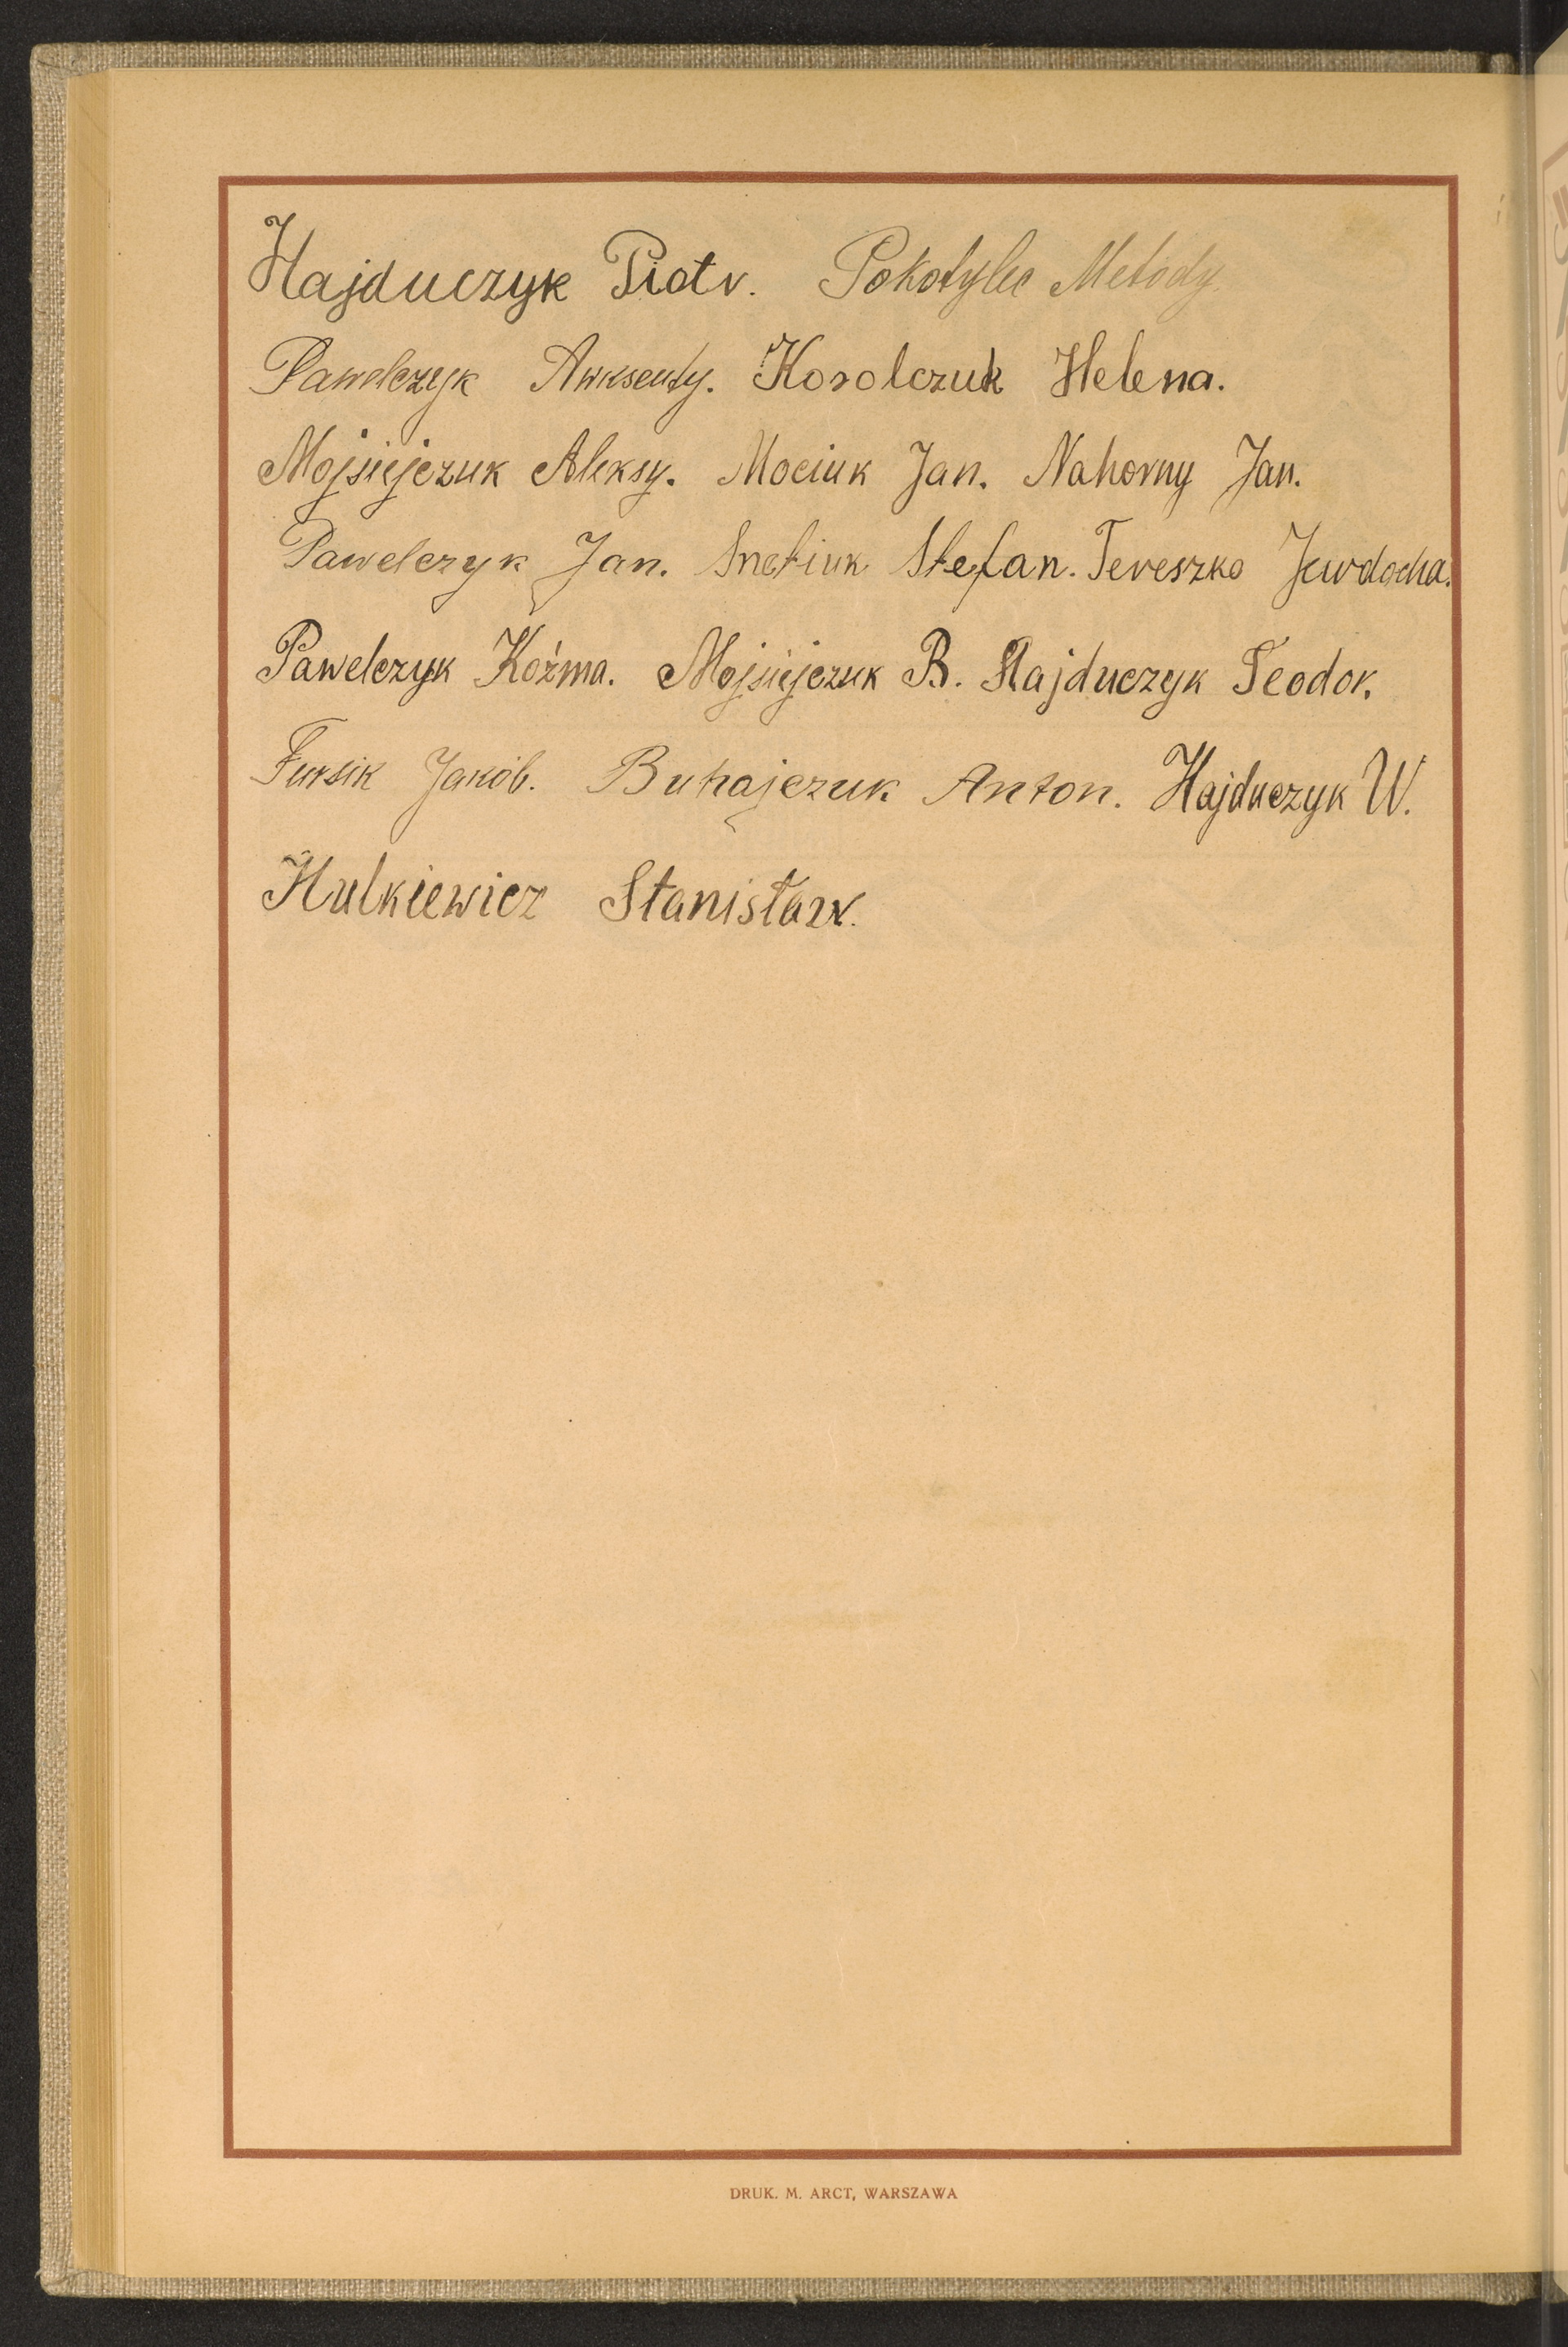 Hajduczyk Piotr. Pokotylec Metody.
Pawelczyk Awksenty. Korolczuk Helena.
Mojsiejczuk Aleksy. Mociuk Jan. Nahorny Jan.
Pawelczyk Jan. Snetiuk Stefan. Tereszko Jewdocha.
Pawelczyk Koźma. Mojsiejczuk B. Hajduczyk Teodor.
Fursik Jakób. Buhajczuk Anton. Hajduczyk W.
Hulkiewicz Stanisław.
DRUK. M. ARCT, WARSZAWA